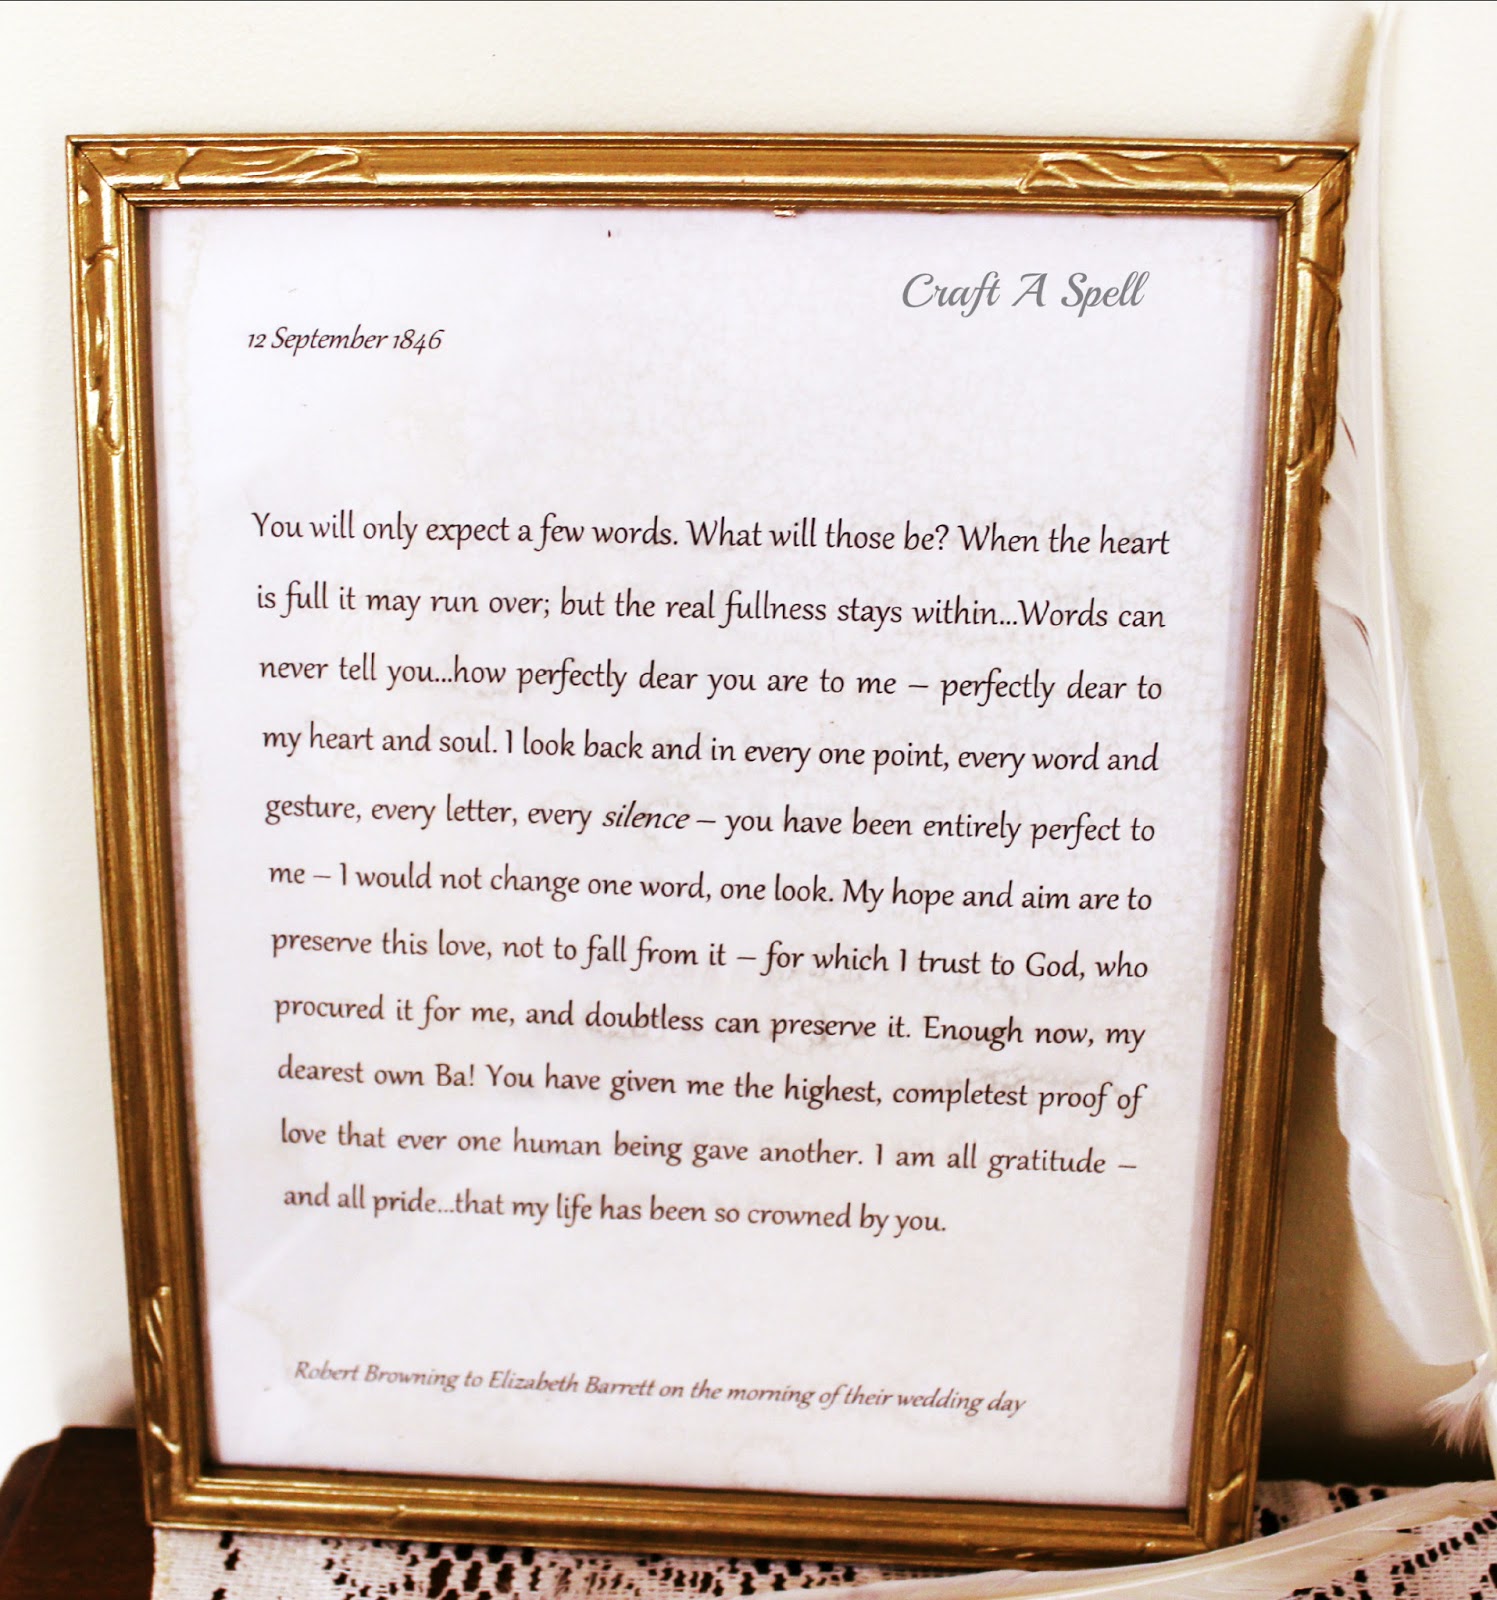 Craft A Spell
12 September 1846
You will only expect a few words. What will those be? When the heart
is full it may run over; but the real fullness stays within...Words can
never tell you...how perfectly dear you are to me – perfectly dear to
my heart and soul. I look back and in every one point, every word and
gesture, every letter, every silence – you have been entirely perfect to
me – I would not change one word, one look. My hope and aim are to
preserve this love, not to fall from it – for which I trust to God, who
procured it for me, and doubtless can preserve it. Enough now, my
dearest own Ba! You have given me the highest, completest proof of
love that ever one human being gave another. I am all gratitude –
and all pride...that my life has been so crowned by you.
Robert Browning to Elizabeth Barrett on the morning of their wedding day